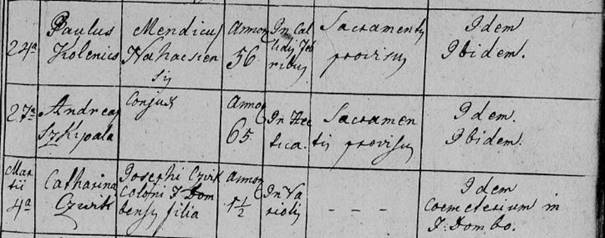 24a Paulus Kolenics
Mendicus Nahacsien sis
Annor 56
In Cal lidis Feb ribus
Sacramentis provisus
Idem Ibidem.
27a Andreas Szkypala
Conjux
Annor 65
In Hec tica.
Sacramen tis provisus
Idem. Ibidem.
Mar tii 4a
Catharina Czvik
Josephi Czvik Coloni T Dom bensis filia
Annor 1 1/2
In Va riolis
- - -
Idem Coemeterium in T. Dombo.